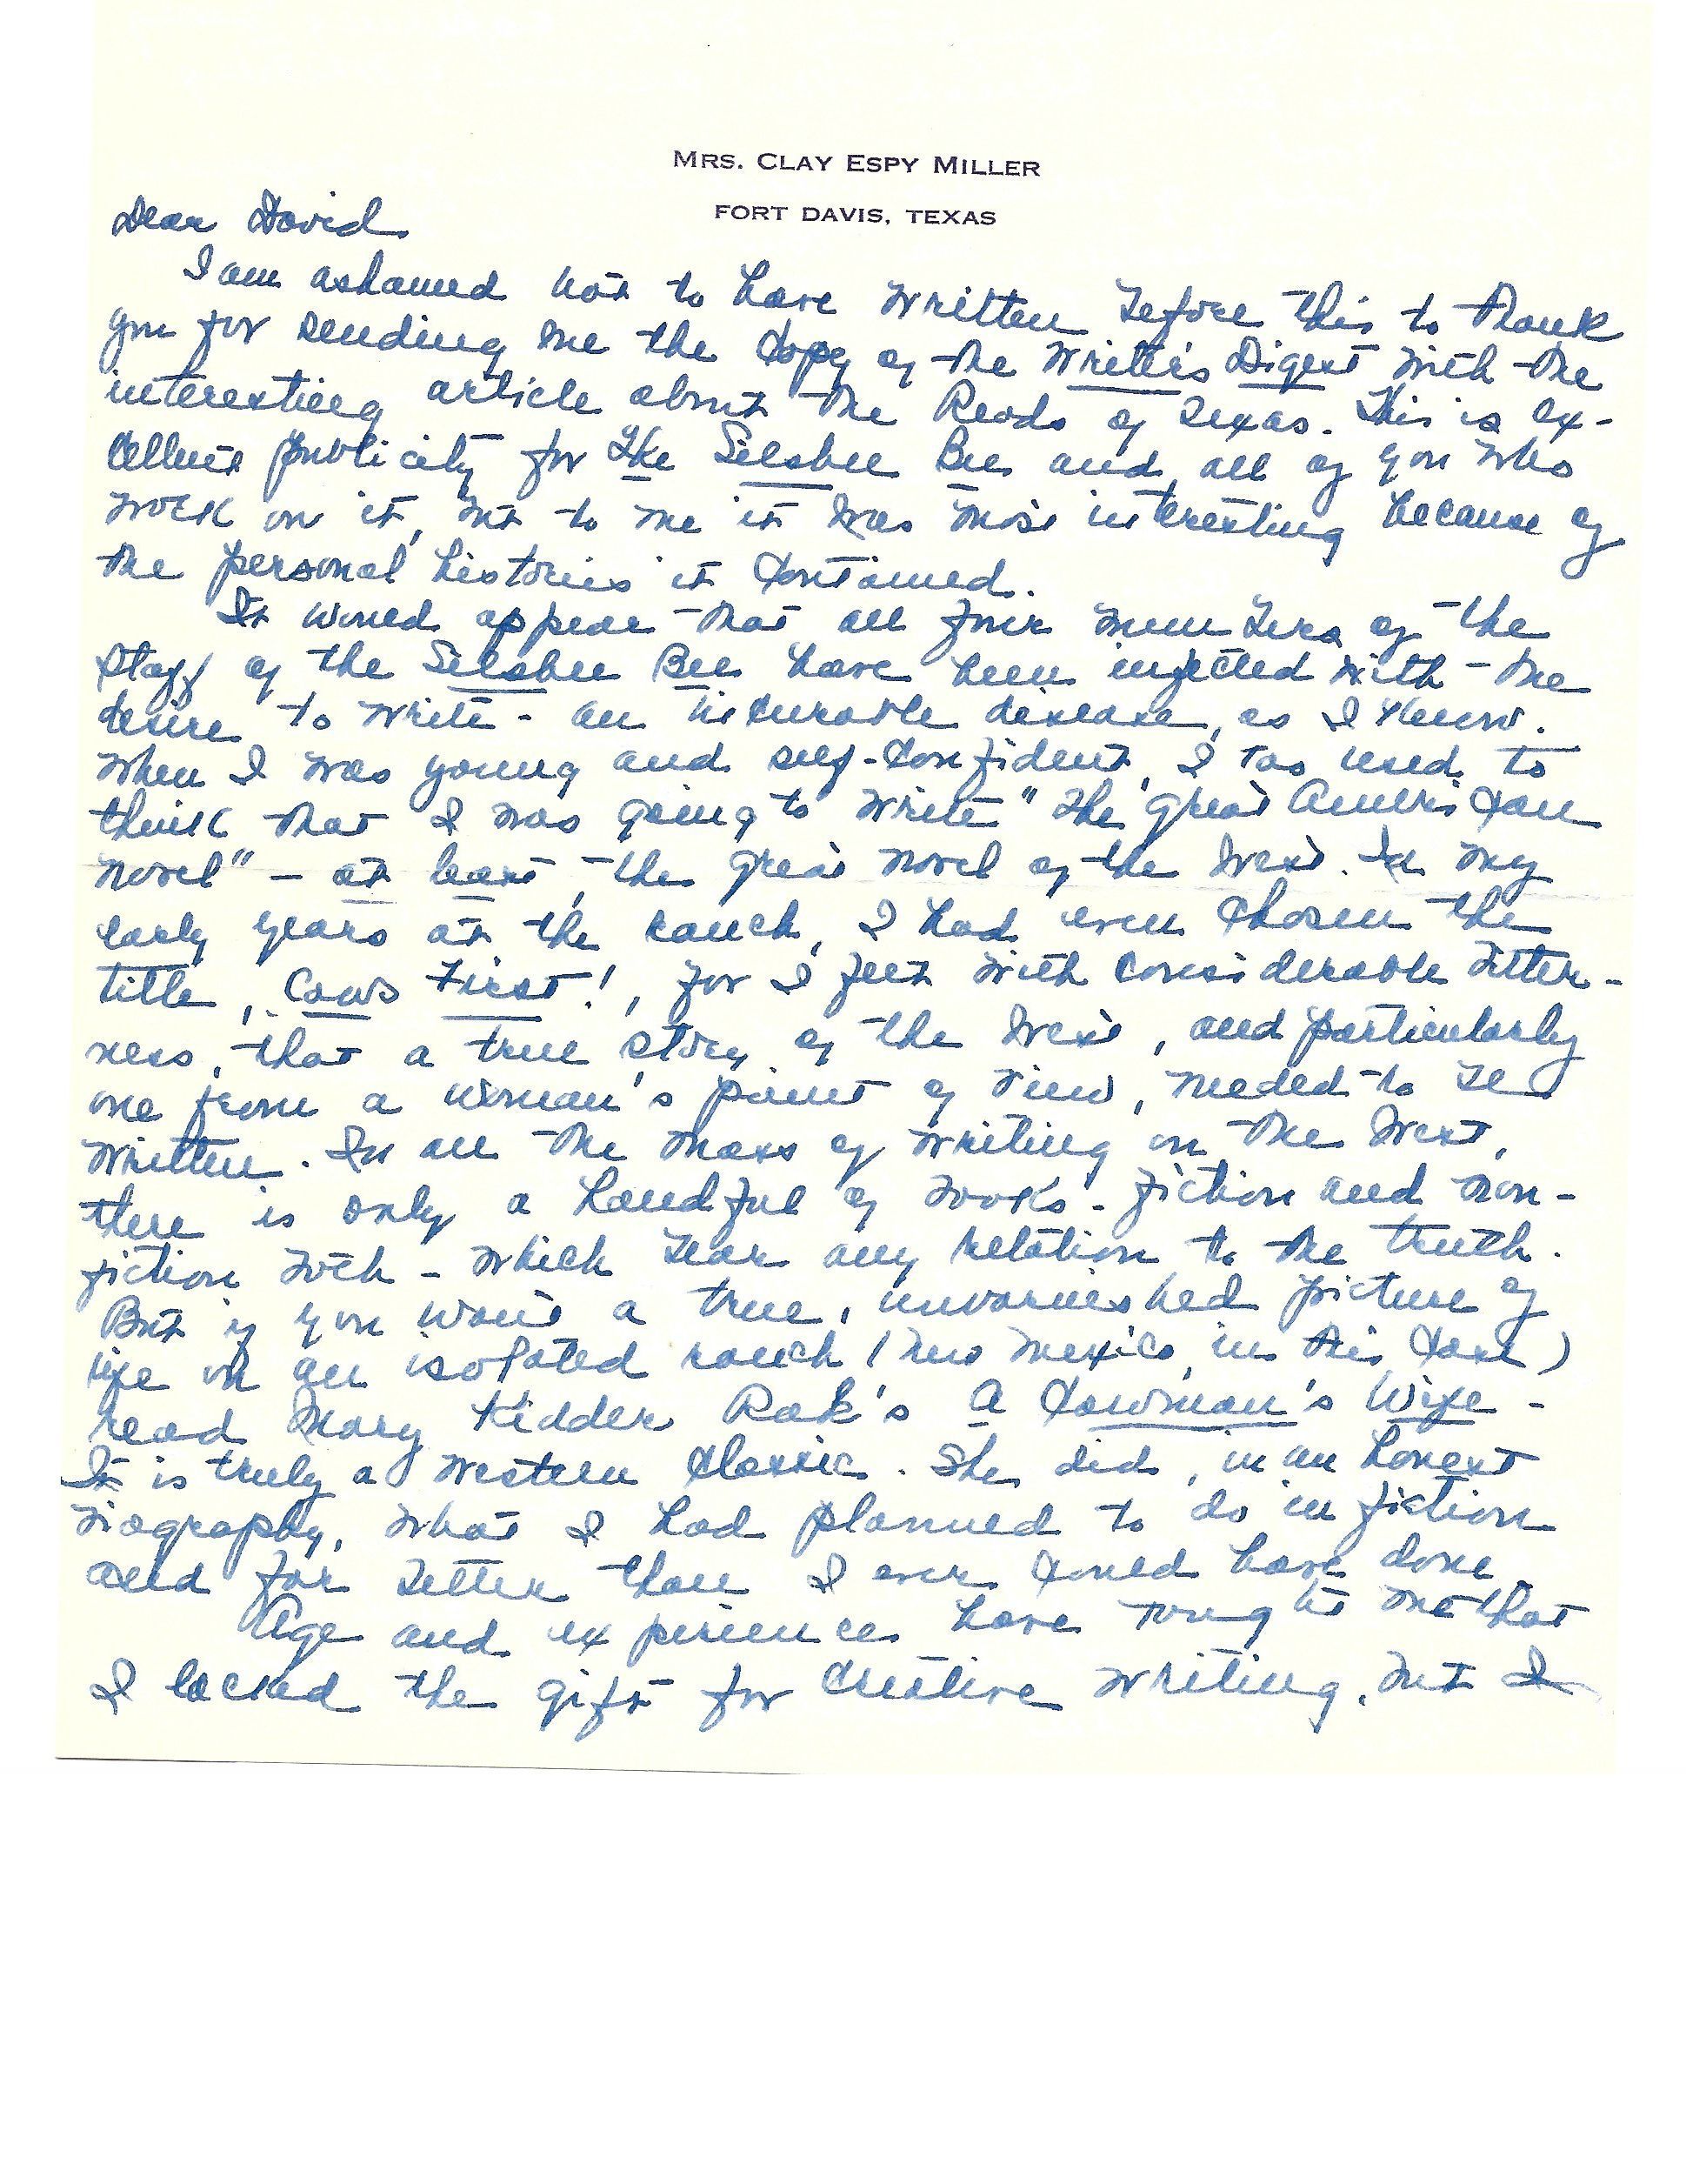 MRS. CLAY ESPY MILLER
FORT DAVIS, TEXAS
Dear David
I am ashamed not to have written before this to thank
you for sending me the copy of the Writer's Digest with the
interesting article about the Reads of Texas. This is ex-
cellent publicity for The Silsbee Bee and all of you who
work on it, but to me it was most interesting because of
the personal histories it contained.
It would appear that all four members of the
staff of the Silsbee Bee have been injected with the
desire to write - an incurable disease, as I know.
When I was young and self-confident, I too used to
think that I was going to write "the great American
novel" - at least, the great novel of the West. In my
early years at the ranch, I had even chosen the
title, Cows First!, for I felt with considerable bitter-
ness, that a true story of the West, and particularly
one from a woman's point of view, needed to be
written. In all the mass of writing on the West,
there is only a handful of books - fiction and non-
fiction both - which bear any relation to the truth.
But if you want a true, unvarnished picture of
life on an isolated ranch (New Mexico, in this case)
read Mary Kidder Rak's A Cowman's Wife -
It is truly a western classic. She did, in an honest
biography, what I had planned to do in fiction
and far better than I ever could have done.
Age and experience have taught me that
I lacked the gift for creative writing, but I